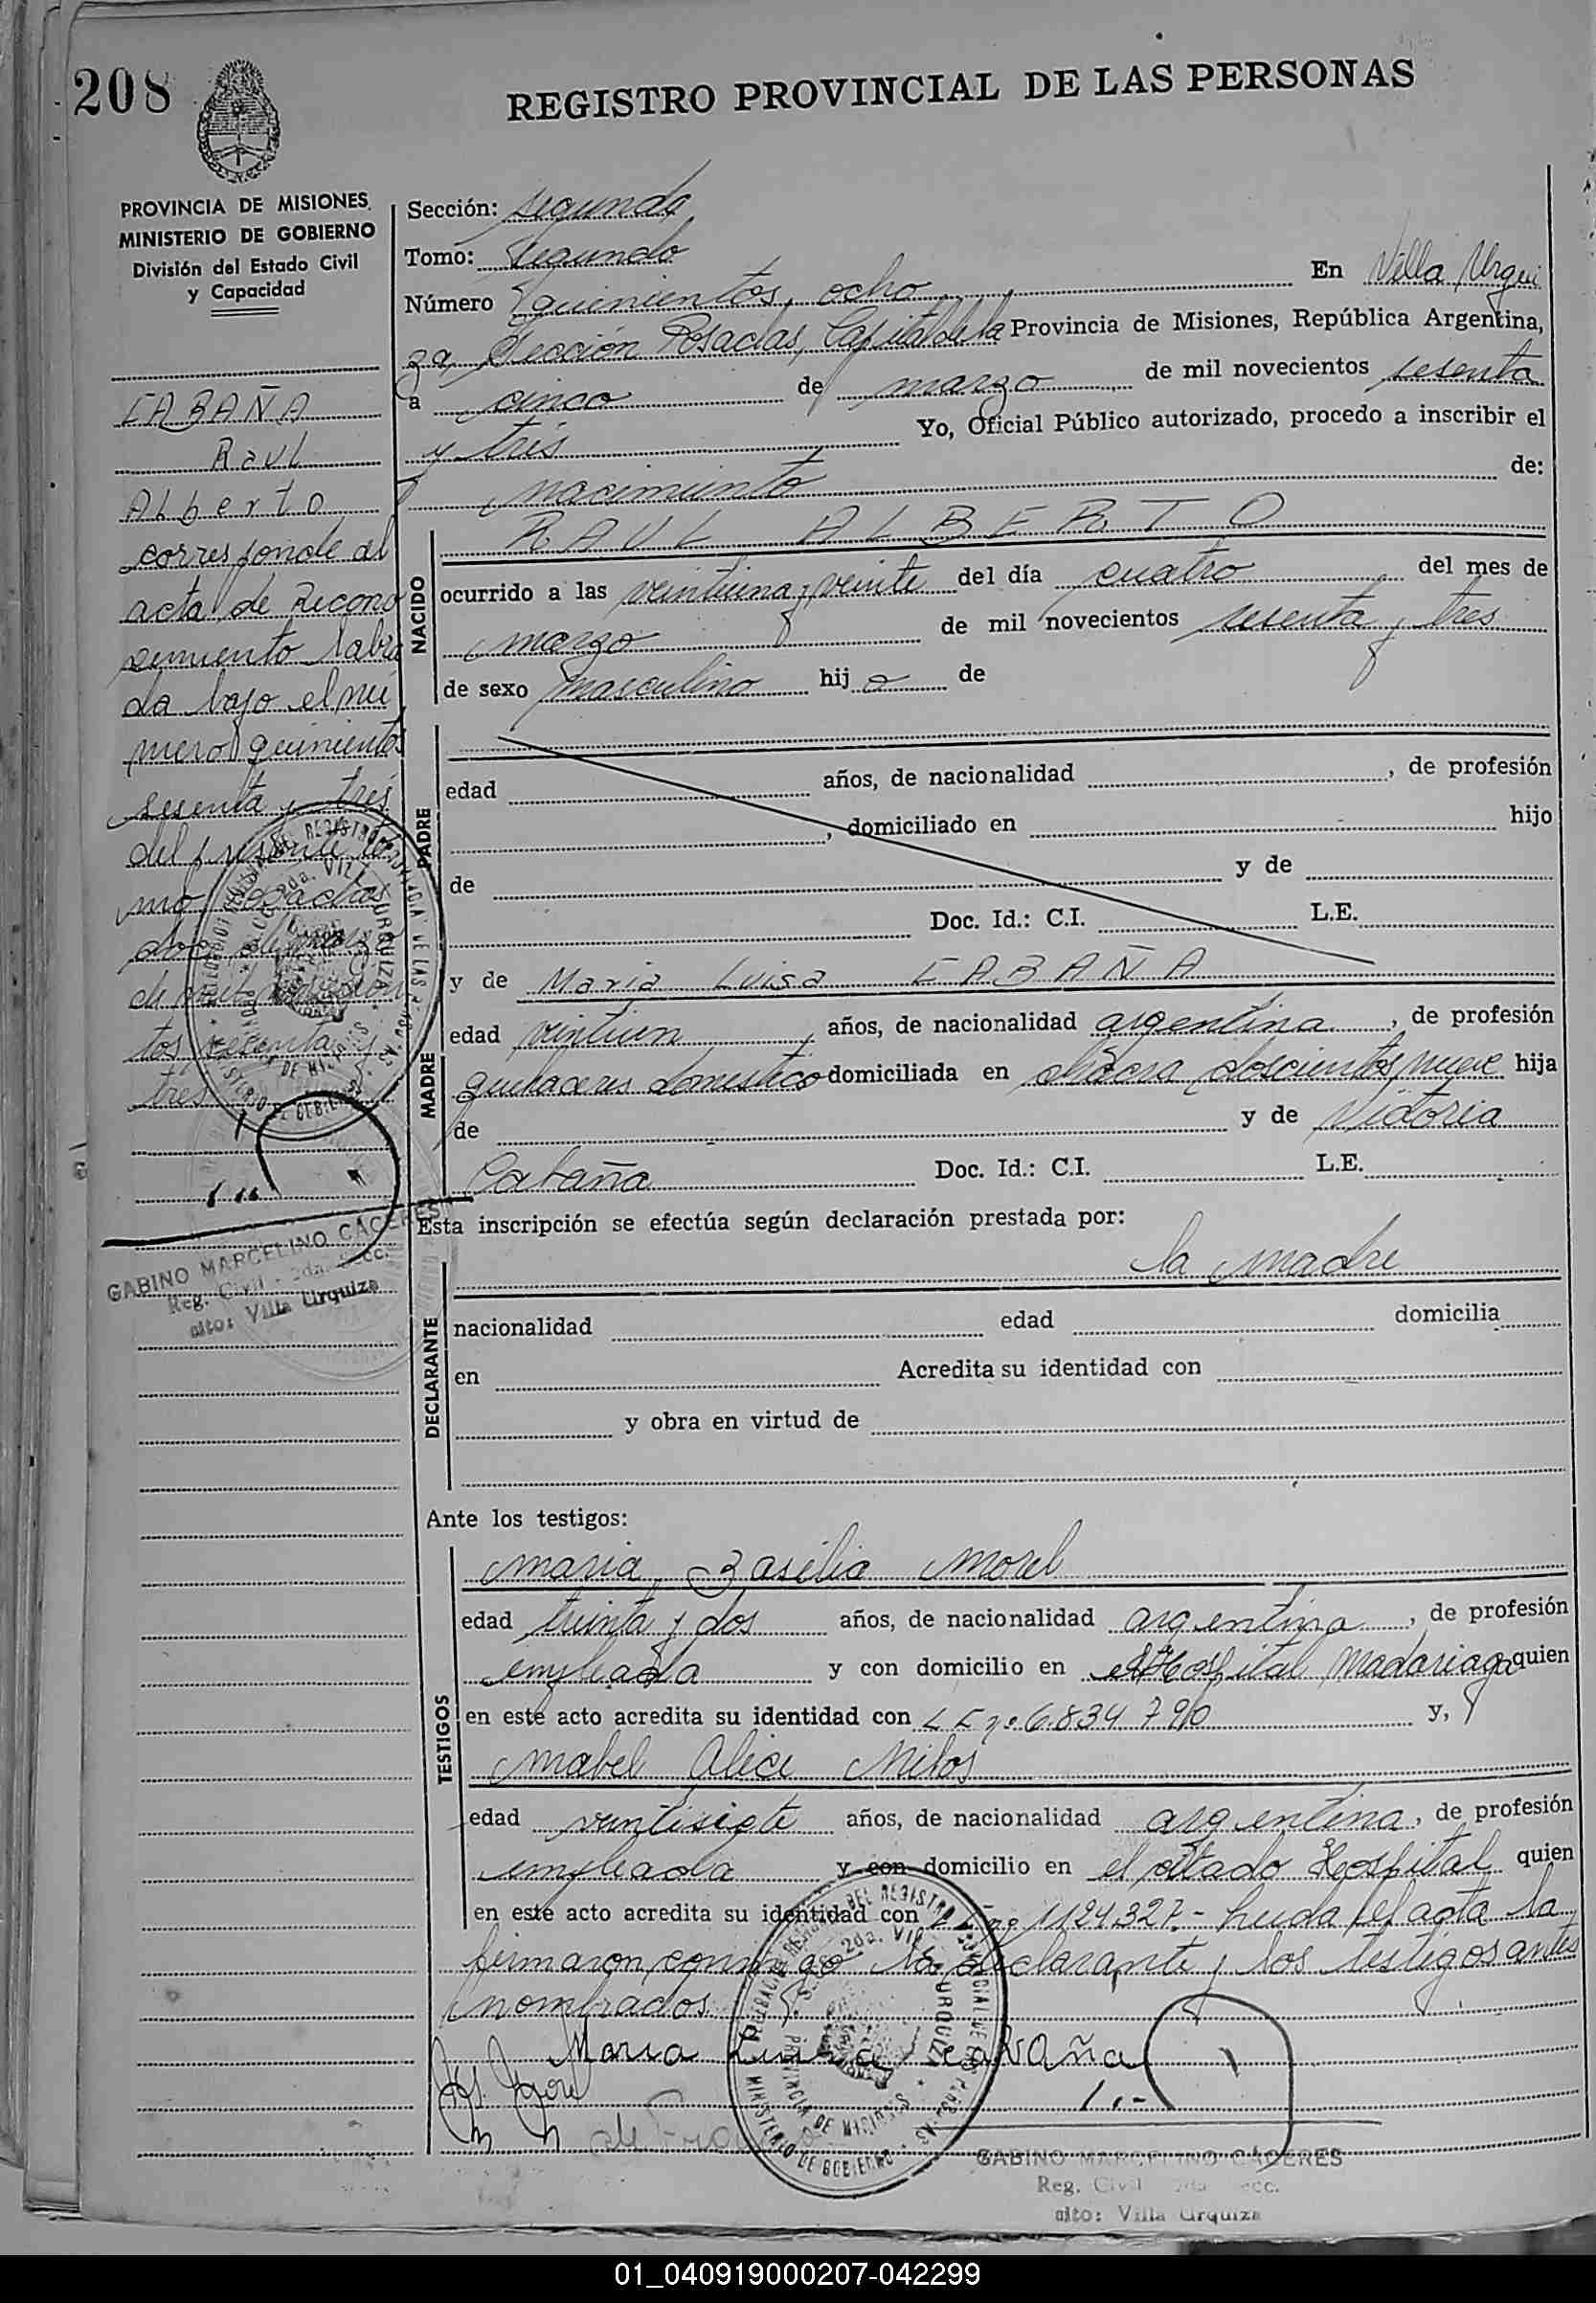 208
REGISTRO PROVINCIAL DE LAS PERSONAS
PROVINCIA DE MISIONES
MINISTERIO DE GOBIERNO
División del Estado Civil
y Capacidad
CABAÑA
Raul
Alberto
corresponde al
acta de Recono
cimiento labra
da bajo el nú
mero quinientos
sesenta y tres
del presente to
mo
de mil novecien
tos sesenta y
tres
GABINO MARCELINO CÁCERES
Reg. Civil - 2da. Secc.
Villa Urquiza
Sección: segunda
Tomo: Segundo
Número quinientos ocho En Villa Urqui
za, Sección Posadas, Capital de la Provincia de Misiones, República Argentina,
a cinco de marzo de mil novecientos sesenta
y tres Yo, Oficial Público autorizado, procedo a inscribir el
nacimiento de:
NACIDO
RAUL ALBERTO
ocurrido a las veintiuna y veinte del día cuatro del mes de
marzo de mil novecientos sesenta y tres
de sexo masculino hij o de
PADRE
edad años, de nacionalidad , de profesión
, domiciliado en hijo
de y de
Doc. Id.: C.I. L.E.
MADRE
y de Maria Luisa CABAÑA
edad veintiun años, de nacionalidad argentina , de profesión
quehaceres domestico domiciliada en chacra doscientos nueve hija
de y de Victoria
Cabaña Doc. Id.: C.I. L.E.
Esta inscripción se efectúa según declaración prestada por:
la madre
DECLARANTE
nacionalidad edad domicilia
en Acredita su identidad con
y obra en virtud de
Ante los testigos:
TESTIGOS
maria Basilia Morel
edad treinta y dos años, de nacionalidad argentina , de profesión
empleada y con domicilio en el Hospital Madariaga quien
en este acto acredita su identidad con 6.834.790 y,
Mabel Alice Milos
edad veintisiete años, de nacionalidad argentina, de profesión
empleada y con domicilio en el citado Hospital quien
en este acto acredita su identidad con 1124.327.- Leida el acta la
firmaron conmigo la declarante y los testigos antes
nombrados.
Maria Luisa Cabaña
GABINO MARCELINO CÁCERES
Reg. Civil 2da. Secc.
Villa Urquiza
01_040919000207-042299